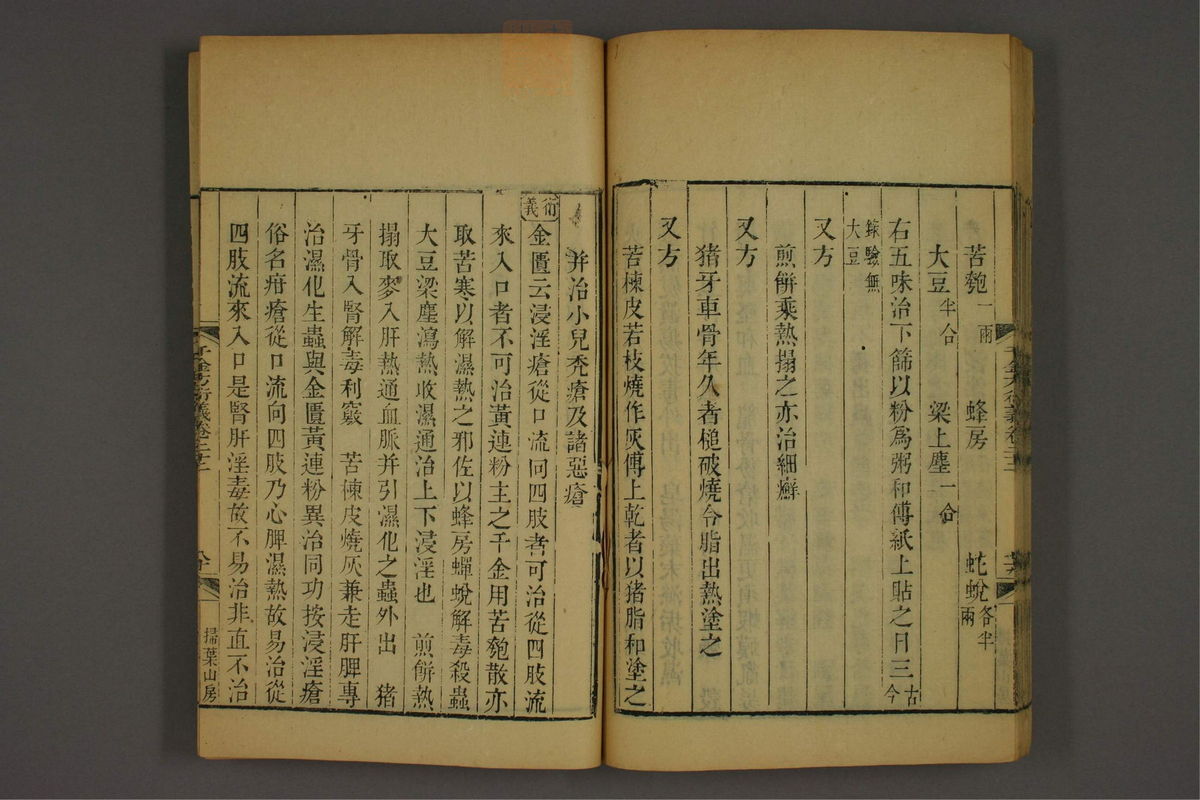 苦瓠一兩　蜂房　蛇蛻各半兩
大豆半合　梁上塵一合
右五味治下篩以粉爲粥和傅紙上貼之日三古今
錄驗無大豆
又方
煎餅乘熱搨之亦治細癬
又方
猪牙車骨年久者槌破燒令脂出熱塗之
又方
苦楝皮若枝燒作灰傅上乾者以猪脂和塗之
并治小兒禿瘡及諸惡瘡
衍義
金匱云浸淫瘡從口流向四肢者可治從四肢流
來入口者不可治黃連粉主之千金用苦瓠散亦
取苦寒以解濕熱之邪佐以蜂房蟬蛻解毒殺蟲
大豆梁塵瀉熱收濕通治上下浸淫也　煎餅熱
搨取麥入肝熱通血脈并引濕化之蟲外出　猪
牙骨入腎解毒利竅　苦楝皮燒灰兼走肝脾專
治濕化生蟲與金匱黃連粉異治同功按浸淫瘡
俗名疳瘡從口流向四肢乃心脾濕熱故易治從
四肢流來入口是腎肝淫毒故不易治非直不治
千金方衍義卷二十二
掃葉山房